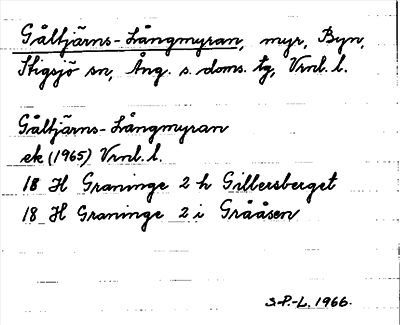 Gåltjärns-Långmyran, myr, Byn,
Stigsjö sn, Ång. s. doms. tg, Vrnl. l.
Gåltjärns-Långmyran
ek (1965) Vrnl. l.
18 H Graninge 2 h Gillersberget
18 H Graninge 2 i Grååsen
S.P.-L. 1966.